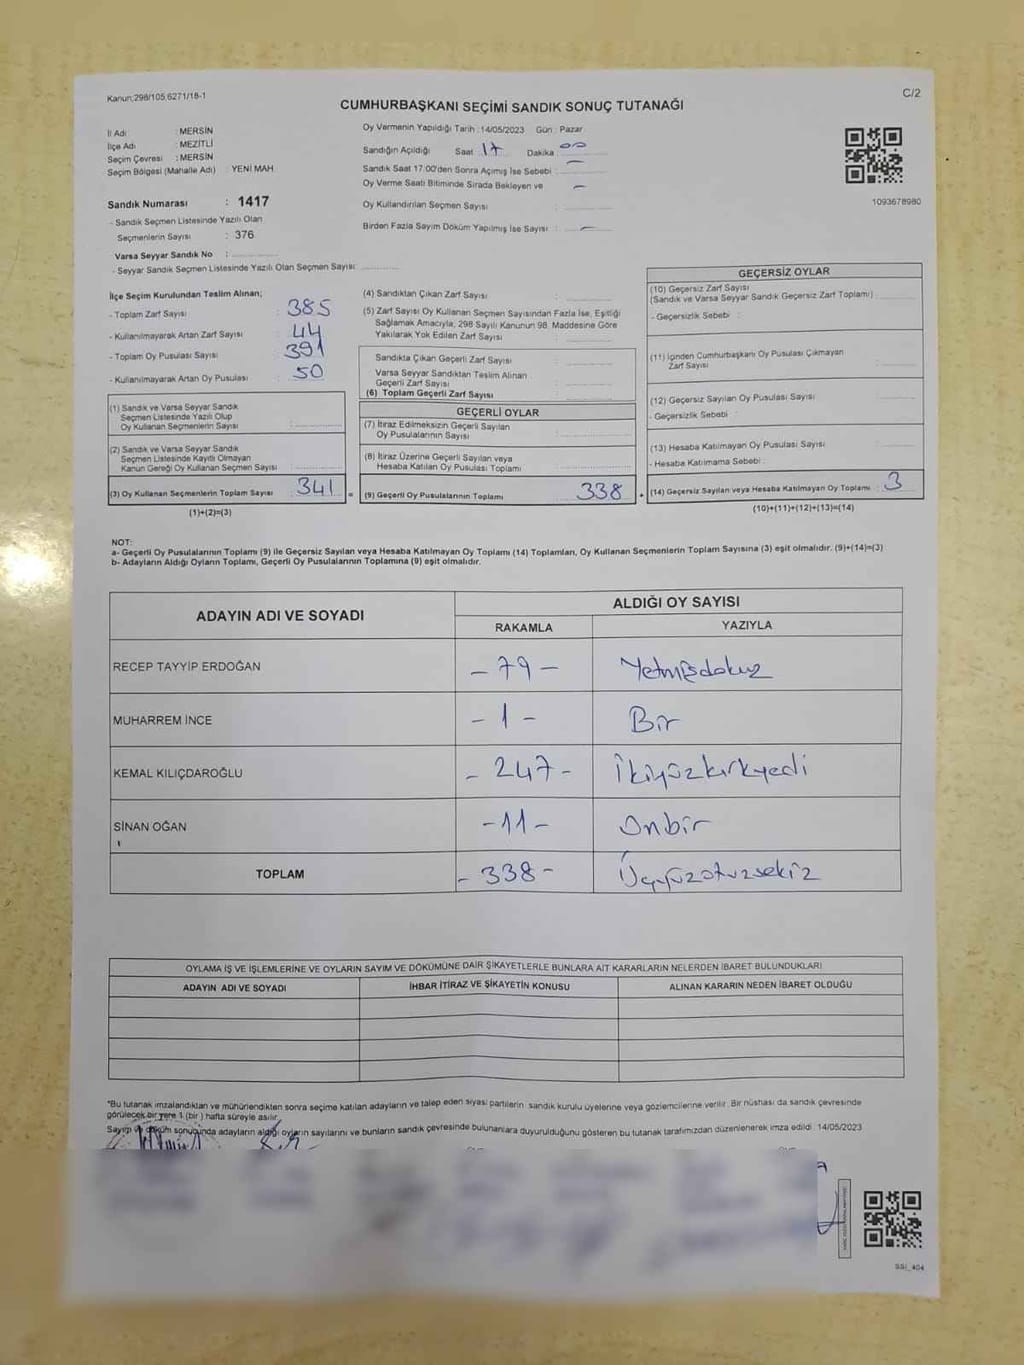 Kanun;298/105,6271/18-1
C/2
CUMHURBAŞKANI SEÇİMİ SANDIK SONUÇ TUTANAĞI
İl Adı : MERSİN
İlçe Adı : MEZİTLİ
Seçim Çevresi : MERSİN
Seçim Bölgesi (Mahalle Adı) : YENİ MAH.
Sandık Numarası : 1417
- Sandık Seçmen Listesinde Yazılı Olan
Seçmenlerin Sayısı : 376
Varsa Seyyar Sandık No :
- Seyyar Sandık Seçmen Listesinde Yazılı Olan Seçmen Sayısı:
Oy Vermenin Yapıldığı Tarih : 14/05/2023 Gün : Pazar
Sandığın Açıldığı Saat 17 Dakika 00
Sandık Saat 17:00'den Sonra Açımış İse Sebebi : –
Oy Verme Saati Bitiminde Sırada Bekleyen ve –
Oy Kullandırılan Seçmen Sayısı :
Birden Fazla Sayım Döküm Yapılmış İse Sayısı : –
1093678980
İlçe Seçim Kurulundan Teslim Alınan;
- Toplam Zarf Sayısı : 385
- Kullanılmayarak Artan Zarf Sayısı : 44
- Toplam Oy Pusulası Sayısı : 391
- Kullanılmayarak Artan Oy Pusulası : 50
(1) Sandık ve Varsa Seyyar Sandık
Seçmen Listesinde Yazılı Olup
Oy Kullanan Seçmenlerin Sayısı :
(2) Sandık ve Varsa Seyyar Sandık
Seçmen Listesinde Kayıtlı Olmayan
Kanun Gereği Oy Kullanan Seçmen Sayısı :
(3) Oy Kullanan Seçmenlerin Toplam Sayısı : 341 =
(1)+(2)=(3)
(4) Sandıktan Çıkan Zarf Sayısı :
(5) Zarf Sayısı Oy Kullanan Seçmen Sayısından Fazla İse, Eşitliği
Sağlamak Amacıyla, 298 Sayılı Kanunun 98. Maddesine Göre
Yakılarak Yok Edilen Zarf Sayısı :
Sandıkta Çıkan Geçerli Zarf Sayısı :
Varsa Seyyar Sandıktan Teslim Alınan
Geçerli Zarf Sayısı :
(6) Toplam Geçerli Zarf Sayısı :
GEÇERLİ OYLAR
(7) İtiraz Edilmeksizin Geçerli Sayılan
Oy Pusulalarının Sayısı :
(8) İtiraz Üzerine Geçerli Sayılan veya
Hesaba Katılan Oy Pusulası Toplamı :
(9) Geçerli Oy Pusulalarının Toplamı : 338 +
GEÇERSİZ OYLAR
(10) Geçersiz Zarf Sayısı
(Sandık ve Varsa Seyyar Sandık Geçersiz Zarf Toplamı) :
- Geçersizlik Sebebi :
(11) İçinden Cumhurbaşkanı Oy Pusulası Çıkmayan
Zarf Sayısı :
(12) Geçersiz Sayılan Oy Pusulası Sayısı :
- Geçersizlik Sebebi :
(13) Hesaba Katılmayan Oy Pusulası Sayısı :
- Hesaba Katılmama Sebebi :
(14) Geçersiz Sayılan veya Hesaba Katılmayan Oy Toplamı : 3
(10)+(11)+(12)+(13)=(14)
NOT:
a- Geçerli Oy Pusulalarının Toplamı (9) ile Geçersiz Sayılan veya Hesaba Katılmayan Oy Toplamı (14) Toplamları, Oy Kullanan Seçmenlerin Toplam Sayısına (3) eşit olmalıdır. (9)+(14)=(3)
b- Adayların Aldığı Oyların Toplamı, Geçerli Oy Pusulalarının Toplamına (9) eşit olmalıdır.
ADAYIN ADI VE SOYADI
ALDIĞI OY SAYISI
RAKAMLA YAZIYLA
RECEP TAYYİP ERDOĞAN - 79 - Yetmişdokuz
MUHARREM İNCE - 1 - Bir
KEMAL KILIÇDAROĞLU - 247 - İkiyüzkırkyedi
SİNAN OĞAN - 11 - Onbir
TOPLAM - 338 - Üçyüzotuzsekiz
OYLAMA İŞ VE İŞLEMLERİNE VE OYLARIN SAYIM VE DÖKÜMÜNE DAİR ŞİKAYETLERLE BUNLARA AİT KARARLARIN NELERDEN İBARET BULUNDUKLARI
ADAYIN ADI VE SOYADI İHBAR İTİRAZ VE ŞİKAYETİN KONUSU ALINAN KARARIN NEDEN İBARET OLDUĞU
*Bu tutanak imzalandıktan ve mühürlendikten sonra seçime katılan adayların ve talep eden siyasi partilerin sandık kurulu üyelerine veya gözlemcilerine verilir. Bir nüshası da sandık çevresinde
görülecek bir yere 1 (bir) hafta süreyle asılır.
Sayım ve döküm sonucunda adayların aldığı oyların sayılarını ve bunların sandık çevresinde bulunanlara duyurulduğunu gösteren bu tutanak tarafımızdan düzenlenerek imza edildi. 14/05/2023
SSI_404